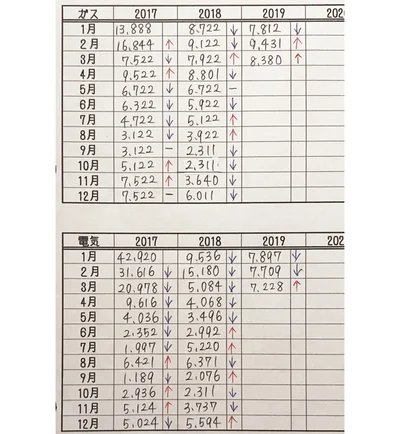 ガス 2017 2018 2019 202
1月 13,888 8,722 ↓ 7,812 ↓
2月 16,844 ↑ 9,122 ↓ 9,431 ↑
3月 7,522 ↓ 7,922 ↑ 8,380 ↑
4月 9,522 ↑ 8,801 ↓
5月 6,722 ↓ 6,722 –
6月 6,322 ↓ 5,922 ↓
7月 4,722 ↓ 5,122 ↑
8月 3,122 ↓ 3,922 ↑
9月 3,122 – 2,311 ↓
10月 5,122 ↑ 2,311 ↓
11月 7,522 ↑ 3,640 ↓
12月 7,522 – 6,011 ↓
電気 2017 2018 2019 202
1月 42,920 9,536 ↓ 7,897 ↓
2月 31,616 ↓ 15,180 ↓ 7,709 ↓
3月 20,978 ↓ 5,084 ↓ 7,228 ↑
4月 9,616 ↓ 4,068 ↓
5月 4,036 ↓ 3,496 ↓
6月 2,352 ↓ 2,992 ↑
7月 1,997 ↓ 5,220 ↑
8月 6,421 ↑ 6,371 ↓
9月 1,189 ↓ 2,076 ↑
10月 2,936 ↑ 2,311 ↓
11月 5,124 ↑ 3,737 ↓
12月 5,024 ↓ 5,594 ↑